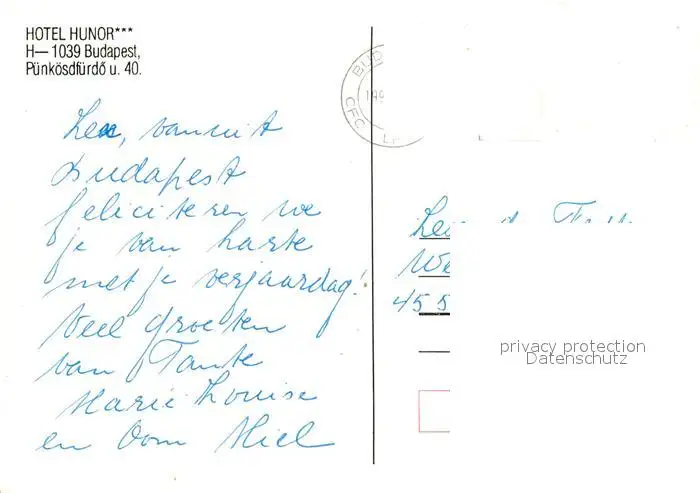 HOTEL HUNOR***
H—1039 Budapest,
Pünkösdfürdő u. 40.
vanuit
Budapest
feliciteren we
je van harte
met je verjaardag!
Veel groeten
van Tante
Marie Louise
en Oom Miel
privacy protection
Datenschutz